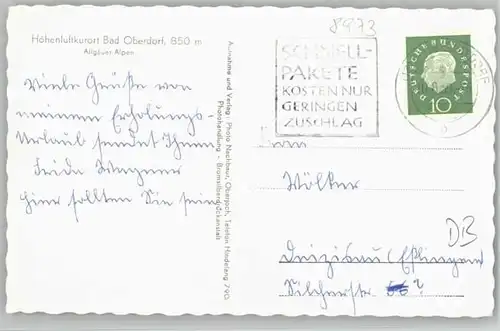 8973
Höhenluftkurort Bad Oberdorf, 850 m
Allgäuer Alpen
Viele Grüße von
meinem Erholungs-
Urlaub sendet Ihnen
Frida Wagner
hier sollten Sie sein
Aufnahme und Verlag: Photo Nachbaur, Oberjoch, Telefon Hindelang 790.
Photohandlung - Bromsilberdruckanstalt
SCHNELL-
PAKETE
KOSTEN NUR
GERINGEN
ZUSCHLAG
DEUTSCHE BUNDESPOST
10
Herrn
Wölker
DB
Deizisau (Esslingen)